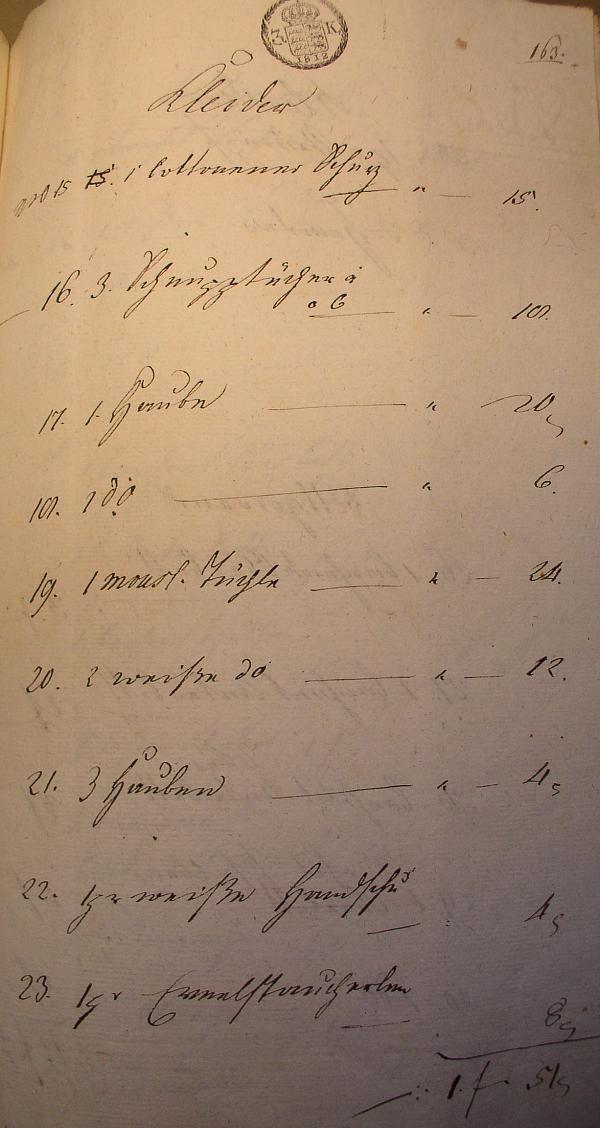 3. K.
1812
163.
Kleider
Nro 15 15. 1 Cottonener Schurz " — 15.
16. 3. Schnupptücher à
6 " — 18.
17. 1. Haube — " — 20
18. 1 do — " 6.
19. 1 mousl. Tüchle — " — 24.
20. 2 weiße do — " — 12.
21. 3 Hauben — " — 4
22. 1 pr weiße Handschu — 4
23. 1 pr Ermelstaucherlen
— 8
1. f. 51